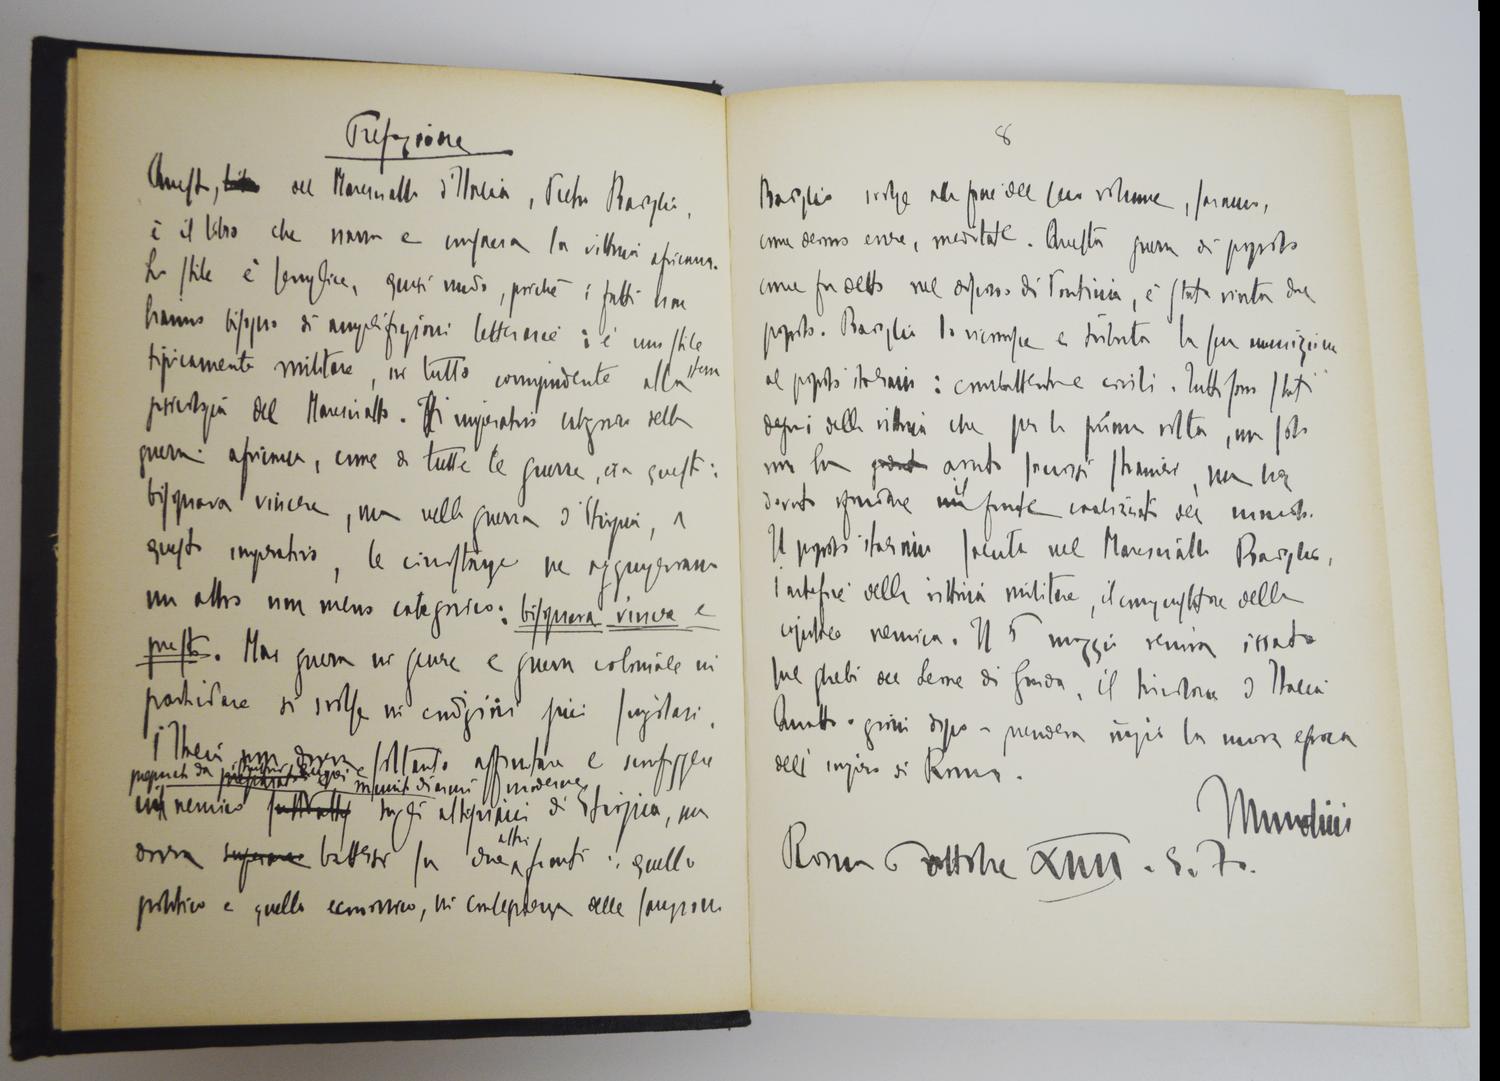 Prefazione
Questo, del Maresciallo d'Italia, Pietro Badoglio,
è il libro che narra e consacra la vittoria africana.
Lo stile è semplice, quasi nudo, poiché i fatti non
hanno bisogno di amplificazioni letterarie: è uno stile
tipicamente militare, in tutto corrispondente alla stessa
psicologia del Maresciallo. Imperativo categorico della
guerra africana, come di tutte le guerre, era questo:
bisognava vincere, ma nella guerra d'Etiopia, a
questo imperativo, le circostanze ne aggiungevano
un altro non meno categorico: bisognava vincere e
presto. Mai guerra in genere e guerra coloniale in
particolare si svolse in condizioni più singolari.
L'Italia non doveva soltanto affrontare e sconfiggere
preparato da europei e munito di armi moderne
un nemico sugli altipiani di Etiopia, ma
doveva battersi su due altri fronti: quello
politico e quello economico, in conseguenza delle sanzioni
8
Badoglio svolge alla fine del suo volume, saranno,
come devono essere, meditate. Questa guerra di popolo
come fu detto nel discorso di Pontinia, è stata vinta dal
popolo. Badoglio lo riconosce e tributa la sua ammirazione
al popolo italiano: combattenti e civili. Tutti sono stati
degni della vittoria che per la prima volta, non solo
non ha avuto soccorsi stranieri, ma ha
dovuto sgominare il fronte coalizzato del mondo.
Il popolo italiano saluta nel Maresciallo Badoglio,
l'artefice della vittoria militare, il conquistatore della
capitale nemica. Il 5 maggio veniva issato
sul ghebì del Leone di Giuda, il tricolore d'Italia
Quattro giorni dopo prendeva inizio la nuova epoca
dell'impero di Roma.
Mussolini
Roma 6 ottobre XIIII. E. F.